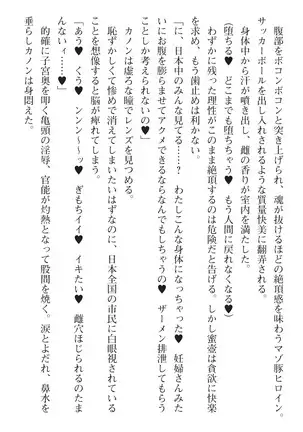 腹部をボコンボコンと突き上げられ、魂が抜ける絶頂感を味わうマゾ豚ヒロイン。
サッカーボールを出し入れされるような質量快美に翻弄される。
身体中から汗が噴き出し、雌の香りが室内を満たした。
(堕ちる♥ どこまでも堕ちちゃう♥ もう人間に戻れなくなる♥)
わずかに残った理性がこのまま絶頂するのは危険だと告げる。しかし蜜壺は貪欲に快楽
を求め、もう歯止めは利かない。
「に、日本中のみんな見てる……? わたしこんな身体になっちゃった♥ 妊婦さんみた
いにお腹を膨らませてアクメできるならなんでもしちゃうの♥ ザーメン排泄してもらう
ことしか考えられないの♥」
カノンは虚ろな瞳でレンズを見つめる。
恥ずかしくて惨めで消えてしまいたいはずなのに、日本全国の市民に白眼視されている
ことを想像すると脳が痺れてしまう。
「あう♥ くう♥ ンンン~~ッ♥ ぎもちイイ♥ イキたい♥ 雌穴ほじられるのたま
んないィ……♥」
的確に子宮奥を叩く亀頭の淫辱。官能が灼熱となって股間を焼く。涙とよだれ、鼻水を
垂らしカノンは身悶えた。